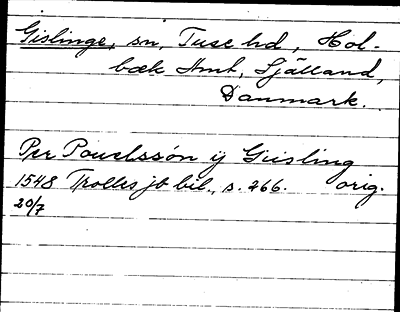 Gislinge, sn, Tuse hd, Hol-
bæk Amt, Själland,
Danmark.
Per Pouelssøn ÿ Giisling
1548 Trolles jb bil., s. 266. orig.
20/7